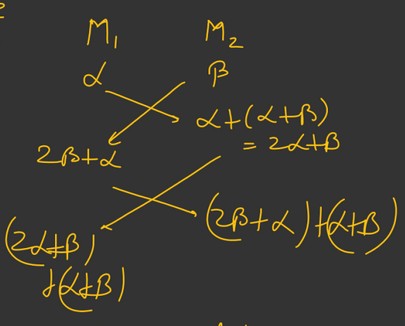 M₁ M₂
α β
α+(α+β)
= 2α+β
2β+α
(2β+α)+(α+β)
(2α+β)
+(α+β)